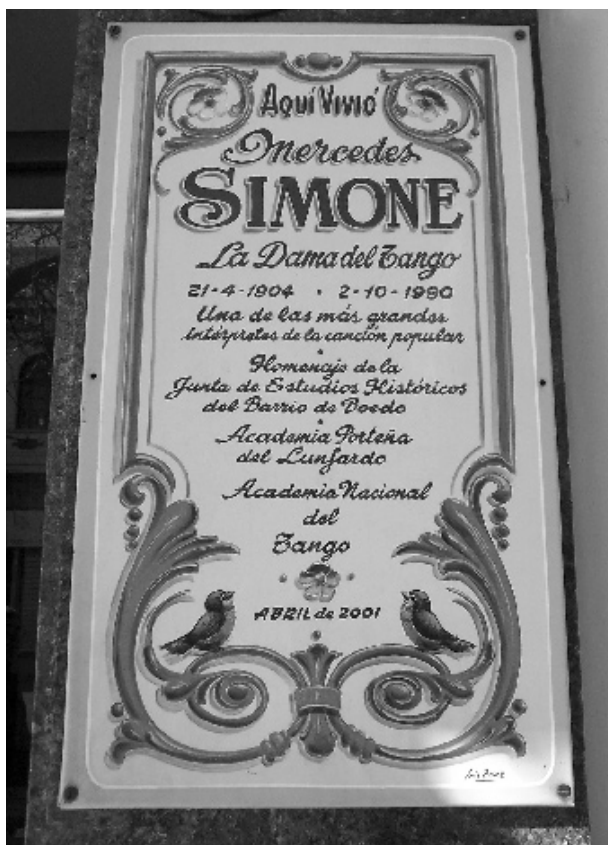 Aquí Vivió
Mercedes
SIMONE
La Dama del Tango
21-4-1904 · 2-10-1990
Una de las más grandes
intérpretes de la canción popular
Homenaje de la
Junta de Estudios Históricos
del Barrio de Boedo
Academia Porteña
del Lunfardo
Academia Nacional
del
Tango
ABRIL de 2001